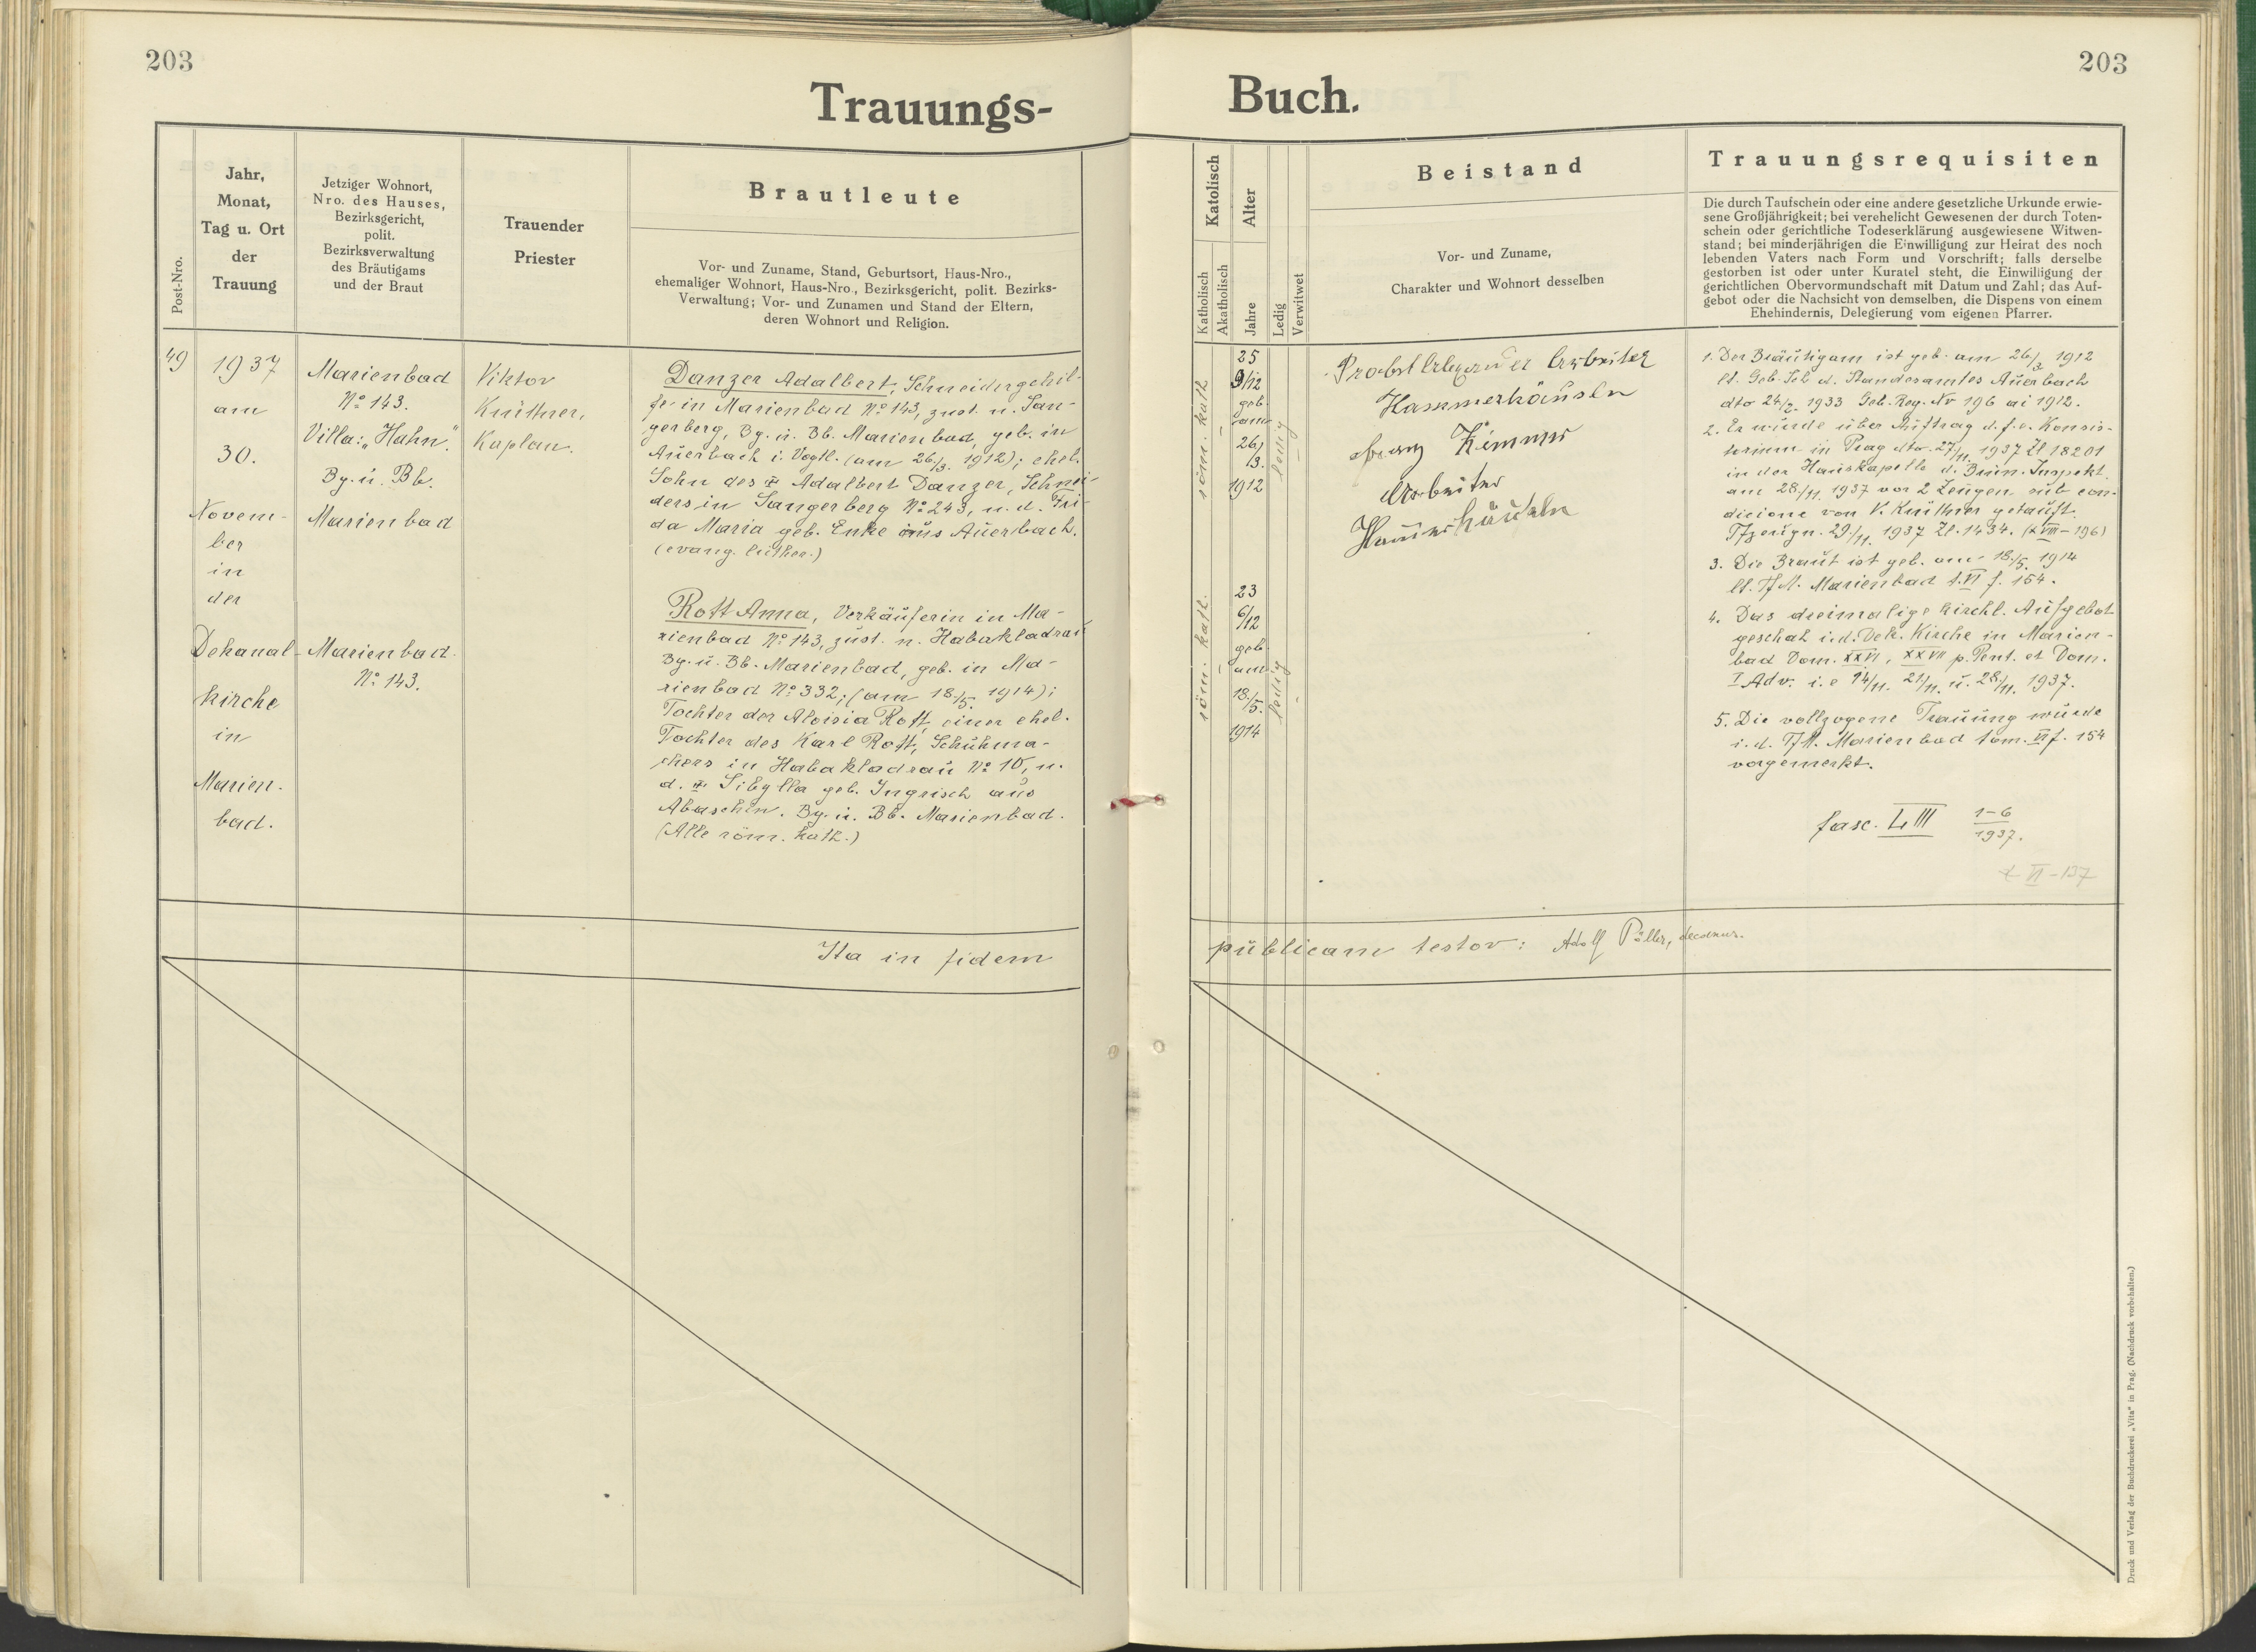 203
203
Trauungs-
Buch.
Post-Nro.
Jahr,
Monat,
Tag u. Ort
der
Trauung
Jetziger Wohnort,
Nro. des Hauses,
Bezirksgericht,
polit.
Bezirksverwaltung
des Bräutigams
und der Braut
Trauender
Priester
Brautleute
Vor- und Zuname, Stand, Geburtsort, Haus-Nro.,
ehemaliger Wohnort, Haus-Nro., Bezirksgericht, polit. Bezirks-
Verwaltung; Vor- und Zunamen und Stand der Eltern,
deren Wohnort und Religion.
Katolisch
Katholisch
Akatholisch
Alter
Jahre
Ledig
Verwitwet
Beistand
Vor- und Zuname,
Charakter und Wohnort desselben
Trauungsrequisiten
Die durch Taufschein oder eine andere gesetzliche Urkunde erwie-
sene Großjährigkeit; bei verehelicht Gewesenen der durch Toten-
schein oder gerichtliche Todeserklärung ausgewiesene Witwen-
stand; bei minderjährigen die Einwilligung zur Heirat des noch
lebenden Vaters nach Form und Vorschrift; falls derselbe
gestorben ist oder unter Kuratel steht, die Einwilligung der
gerichtlichen Obervormundschaft mit Datum und Zahl; das Auf-
gebot oder die Nachsicht von demselben, die Dispens von einem
Ehehindernis, Delegierung vom eigenen Pfarrer.
49
1937
am
30.
Novem-
ber
in
der
Dekanal-
kirche
in
Marien-
bad.
Marienbad
No 143.
Villa: "Hahn".
Bg. u. Bb.
Marienbad
Marienbad.
No 143.
Viktor
Knüttner,
Kaplan.
Danzer Adalbert, Schneidergehil-
fe in Marienbad No 143, zust. n. San-
gerberg, Bg. u. Bb. Marienbad, geb. in
Auerbach i. Vogtl. (am 26./3. 1912); ehel.
Sohn des Adalbert Danzer, Schnei-
ders in Sangerberg No 243, u. d. Fri-
da Maria geb. Enke aus Auerbach.
(evang. luther.)
Rott Anna, Verkäuferin in Ma-
rienbad No 143, zust. n. Habakladrau
Bg. u. Bb. Marienbad, geb. in Ma-
rienbad No 332; (am 18./5. 1914);
Tochter der Aloisia Rott, einer ehel.
Tochter des Karl Rott, Schuhma-
chers in Habakladrau No 10, u.
d. Sibylla geb. Ingrisch aus
Abaschin. Bg. u. Bb. Marienbad.
(Alle röm. kath.)
röm. kath
25
9/12
geb.
am
26./
/3.
1912
ledig
röm. kath.
23
6/12
geb.
am
18./
/5.
1914
ledig
Probst Arbeiter
Hammerhäuseln
Franz
Arbeiter
Hammerhäuseln
1. Der Bräutigam ist geb. am 26./3. 1912
lt. Geb. Sch d. Standesamtes Auerbach
dto 24/2. 1933 Geb. Reg. Nr 196 ai 1912.
2. Er wurde über Auftrag d. f. e. Konsis-
torium in Prag dto. 27./11. 1937 Zl 18201
in der Hauskapelle d. Brun. Inspekt.
am 28./11. 1937 vor 2 Zeugen sub con-
dicione von V. Knüttner getauft.
Tfzeugn. 29./11. 1937 Zl. 1434. (XVIII-196)
3. Die Braut ist geb. am 18./5. 1914
lt. TfM. Marienbad t. VI f. 154.
4. Das dreimalige kirchl. Aufgebot
geschah i. d. Dek. Kirche in Marien-
bad Dom. XXVI, XXVII p. Pent. et Dom.
I Adv. i. e 14/11. 21/11. u. 28/11. 1937.
5. Die vollzogene Trauung wurde
i. d. TfM. Marienbad tom. VI f. 154
vorgemerkt.
fasc. LIII 1-6
1937.
VI-137
Ita in fidem
publicam testor: Adolf decanus.
Druck und Verlag der Buchdruckerei „Vita" in Prag. (Nachdruck vorbehalten.)